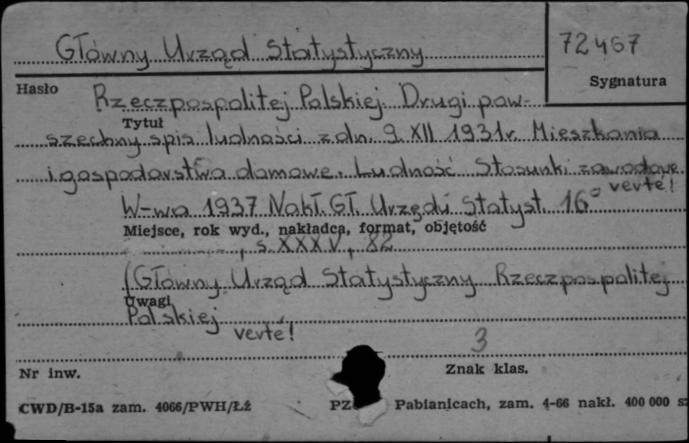 Główny Urząd Statystyczny
72457
Hasło
Sygnatura
Rzeczpospolitej Polskiej. Drugi pow-
Tytuł
szechny spis ludności z dn. 9 XII 1931r. Mieszkania
i gospodarstwa domowe. Ludność Stosunki zawodowe.
verte!
W-wa 1937 Nakł. Gł. Urzędu Statyst. 16°
Miejsce, rok wyd., nakładca, format, objętość
, s. XXXV, 82
(Główny Urząd Statystyczny Rzeczpospolitej
Uwagi
Polskiej
verte!
3
Nr inw.
Znak klas.
CWD/B-15a zam. 4066/PWH/Łż
PZ Pabianicach, zam. 4-66 nakł. 400 000 sz